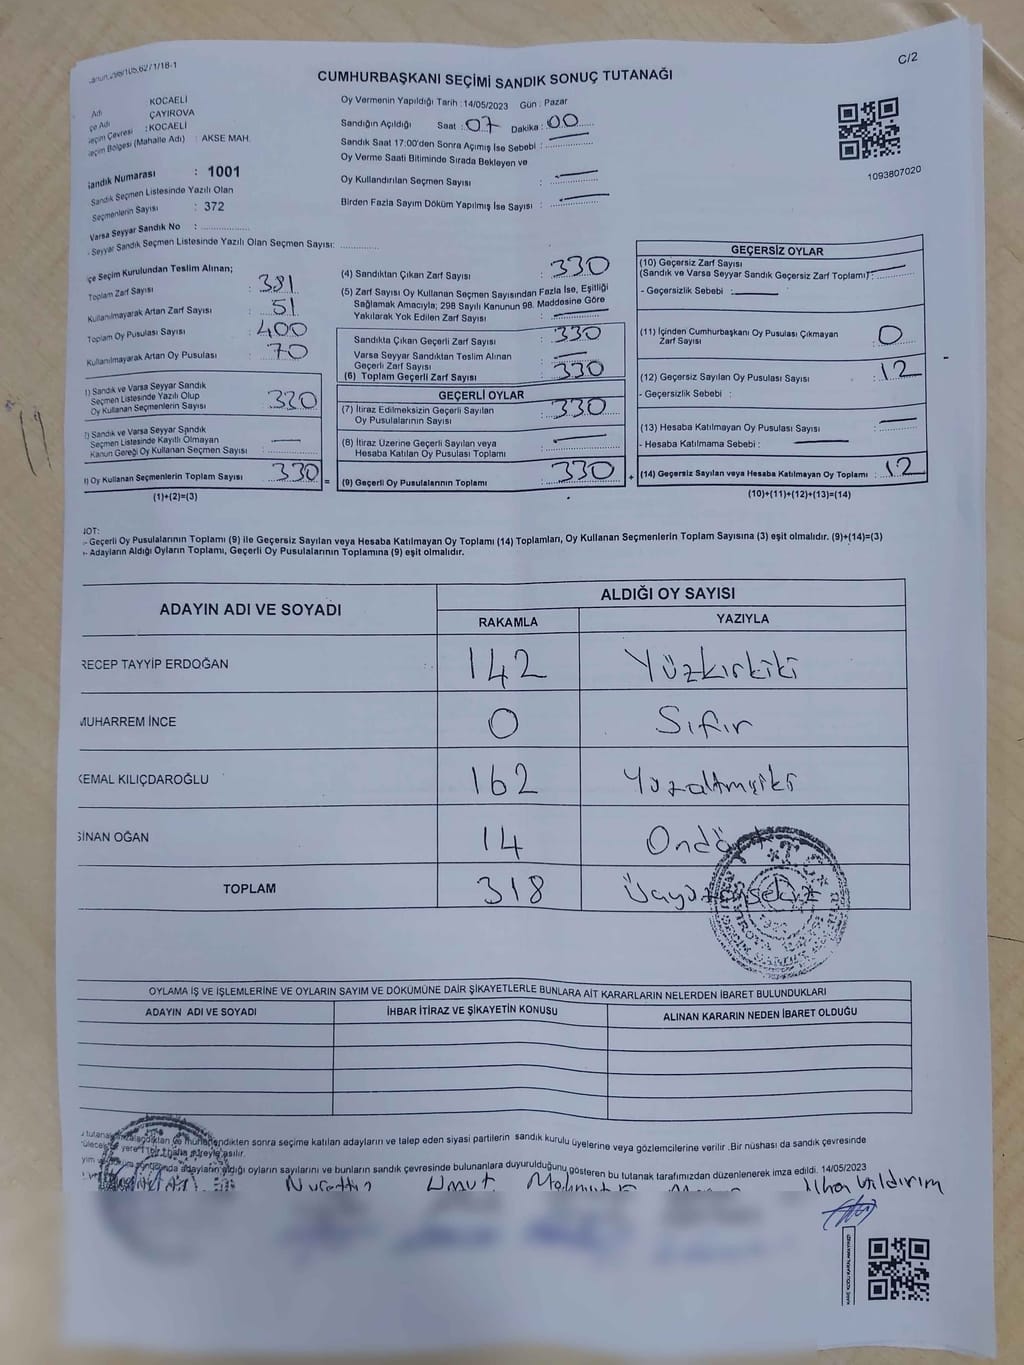 C/2
CUMHURBAŞKANI SEÇİMİ SANDIK SONUÇ TUTANAĞI
KOCAELİ
ÇAYIROVA
:KOCAELİ
(Mahalle Adı) : AKSE MAH.
Sandık Numarası : 1001
Sandık Seçmen Listesinde Yazılı Olan
Seçmenlerin Sayısı : 372
Varsa Seyyar Sandık No :
Seyyar Sandık Seçmen Listesinde Yazılı Olan Seçmen Sayısı:
Oy Vermenin Yapıldığı Tarih :14/05/2023 Gün : Pazar
Sandığın Açıldığı Saat : 07 Dakika : 00
Sandık Saat 17:00'den Sonra Açımış İse Sebebi :
Oy Verme Saati Bitiminde Sırada Bekleyen ve
Oy Kullandırılan Seçmen Sayısı :
Birden Fazla Sayım Döküm Yapılmış İse Sayısı :
1093807020
çe Seçim Kurulundan Teslim Alınan;
Toplam Zarf Sayısı : 381
Kullanılmayarak Artan Zarf Sayısı : 51
Toplam Oy Pusulası Sayısı : 400
Kullanılmayarak Artan Oy Pusulası : 70
) Sandık ve Varsa Seyyar Sandık
Seçmen Listesinde Yazılı Olup
Oy Kullanan Seçmenlerin Sayısı : 330
) Sandık ve Varsa Seyyar Sandık
Seçmen Listesinde Kayıtlı Olmayan
Kanun Gereği Oy Kullanan Seçmen Sayısı :
) Oy Kullanan Seçmenlerin Toplam Sayısı : 330 =
(1)+(2)=(3)
(4) Sandıktan Çıkan Zarf Sayısı : 330
(5) Zarf Sayısı Oy Kullanan Seçmen Sayısından Fazla İse, Eşitliği
Sağlamak Amacıyla; 298 Sayılı Kanunun 98. Maddesine Göre
Yakılarak Yok Edilen Zarf Sayısı :
Sandıkta Çıkan Geçerli Zarf Sayısı : 330
Varsa Seyyar Sandıktan Teslim Alınan
Geçerli Zarf Sayısı :
(6) Toplam Geçerli Zarf Sayısı : 330
GEÇERLİ OYLAR
(7) İtiraz Edilmeksizin Geçerli Sayılan
Oy Pusulasının Sayısı : 330
(8) İtiraz Üzerine Geçerli Sayılan veya
Hesaba Katılan Oy Pusulası Toplamı :
(9) Geçerli Oy Pusulalarının Toplamı : 330 +
GEÇERSİZ OYLAR
(10) Geçersiz Zarf Sayısı
(Sandık ve Varsa Seyyar Sandık Geçersiz Zarf Toplamı) :
- Geçersizlik Sebebi :
(11) İçinden Cumhurbaşkanı Oy Pusulası Çıkmayan
Zarf Sayısı : 0
(12) Geçersiz Sayılan Oy Pusulası Sayısı : 12
- Geçersizlik Sebebi :
(13) Hesaba Katılmayan Oy Pusulası Sayısı :
- Hesaba Katılmama Sebebi :
(14) Geçersiz Sayılan veya Hesaba Katılmayan Oy Toplamı : 12
(10)+(11)+(12)+(13)=(14)
NOT:
- Geçerli Oy Pusulalarının Toplamı (9) ile Geçersiz Sayılan veya Hesaba Katılmayan Oy Toplamı (14) Toplamları, Oy Kullanan Seçmenlerin Toplam Sayısına (3) eşit olmalıdır. (9)+(14)=(3)
- Adayların Aldığı Oyların Toplamı, Geçerli Oy Pusulalarının Toplamına (9) eşit olmalıdır.
ADAYIN ADI VE SOYADI ALDIĞI OY SAYISI
RAKAMLA YAZIYLA
RECEP TAYYİP ERDOĞAN : 142 Yüzkırkiki
MUHARREM İNCE 0 Sıfır
KEMAL KILIÇDAROĞLU 162 Yüzaltmışiki
SİNAN OĞAN 14 Ondört
TOPLAM 318 Üçyüzonsekiz
OYLAMA İŞ VE İŞLEMLERİNE VE OYLARIN SAYIM VE DÖKÜMÜNE DAİR ŞİKAYETLERLE BUNLARA AİT KARARLARIN NELERDEN İBARET BULUNDUKLARI
ADAYIN ADI VE SOYADI İHBAR İTİRAZ VE ŞİKAYETİN KONUSU ALINAN KARARIN NEDEN İBARET OLDUĞU
sonra seçime katılan adayların ve talep eden siyasi partilerin sandık kurulu üyelerine veya gözlemcilerine verilir .Bir nüshası da sandık çevresinde
adayların aldığı oyların sayılarını ve bunların sandık çevresinde bulunanlara duyurulduğunu gösteren bu tutanak tarafımızdan düzenlenerek imza edildi. 14/05/2023
Nurettin Umut Mahmut İlhan Yıldırım